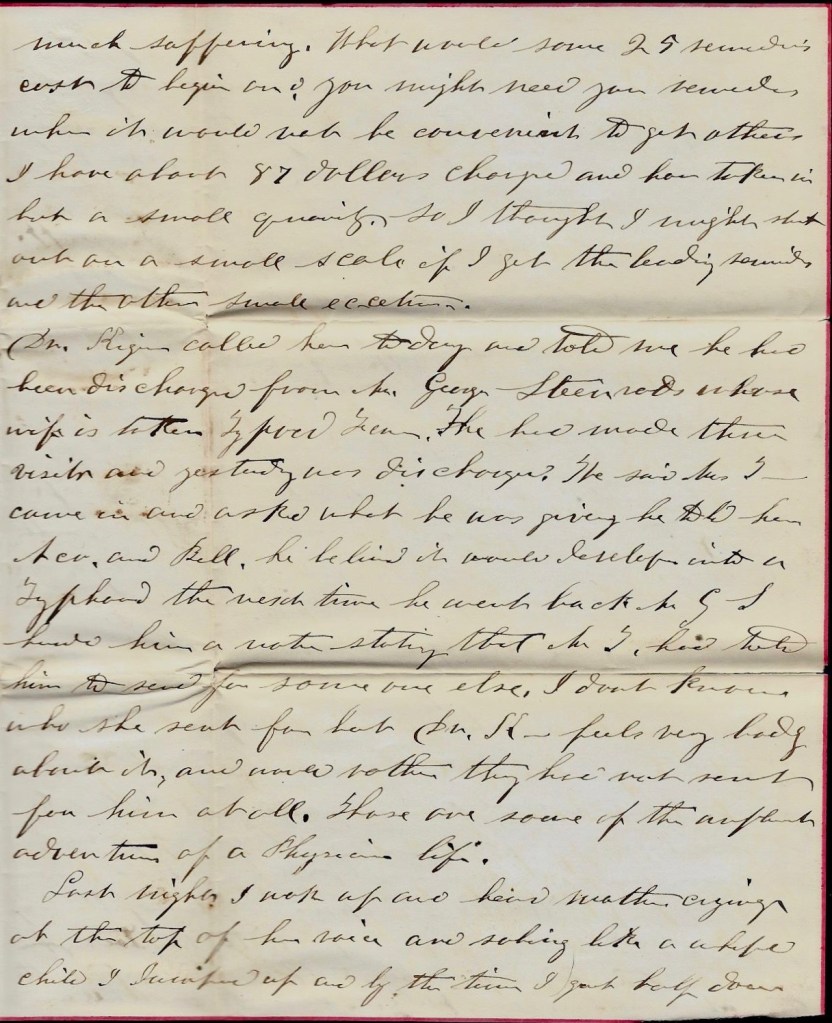 much suffering. What would some 25 remedies
cost to begin on, you might need your remedies
when it would not be convenient to get others
I have about 87 dollars charged and have taken in
but a small quanity. So I thought I might start
out on a small scale if I get the leading remidies
and the others small
Dr. called here to day and told me he had
been discharged from Mr. George Steenrods whose
wife is taken Typoid Fever. He had made three
visits and yesterday was discharged. He said Mrs T—
came in and asked what he was giving he told her
Aco. and Bell. he believed it would develope into a
Typhoid the next time he went back Mr G S
him a note stating that Mr T. had told
him to send for some one else. I dont know
who she sent for but Dr. K— feels very badly
about it, and would rather they had not sent
for him at all. Those are some of the unpleasant
adventures of a Physicians life.
Last night I woke up and heard mother crying
at the top of her voice and sobing like a whiped
child I Jumped up and by the time I got half down